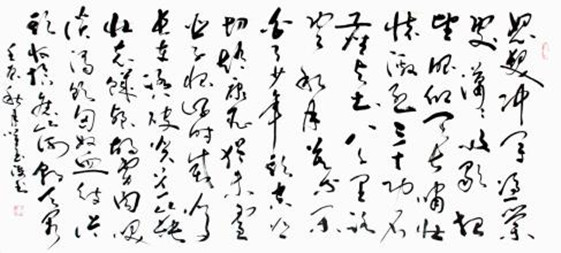 怒髮冲冠憑欄
處瀟瀟雨歇抬
望眼仰天長嘯壯
懷激烈三十功名
塵與土八千里路
雲和月莫等閑
白了少年頭空悲
切靖康恥猶未雪
臣子恨何時滅駕
長車踏破賀蘭山缺
壯志饑餐胡虜肉笑
談渴飲匈奴血待從
頭收拾舊山河朝天闕
壬辰秋月